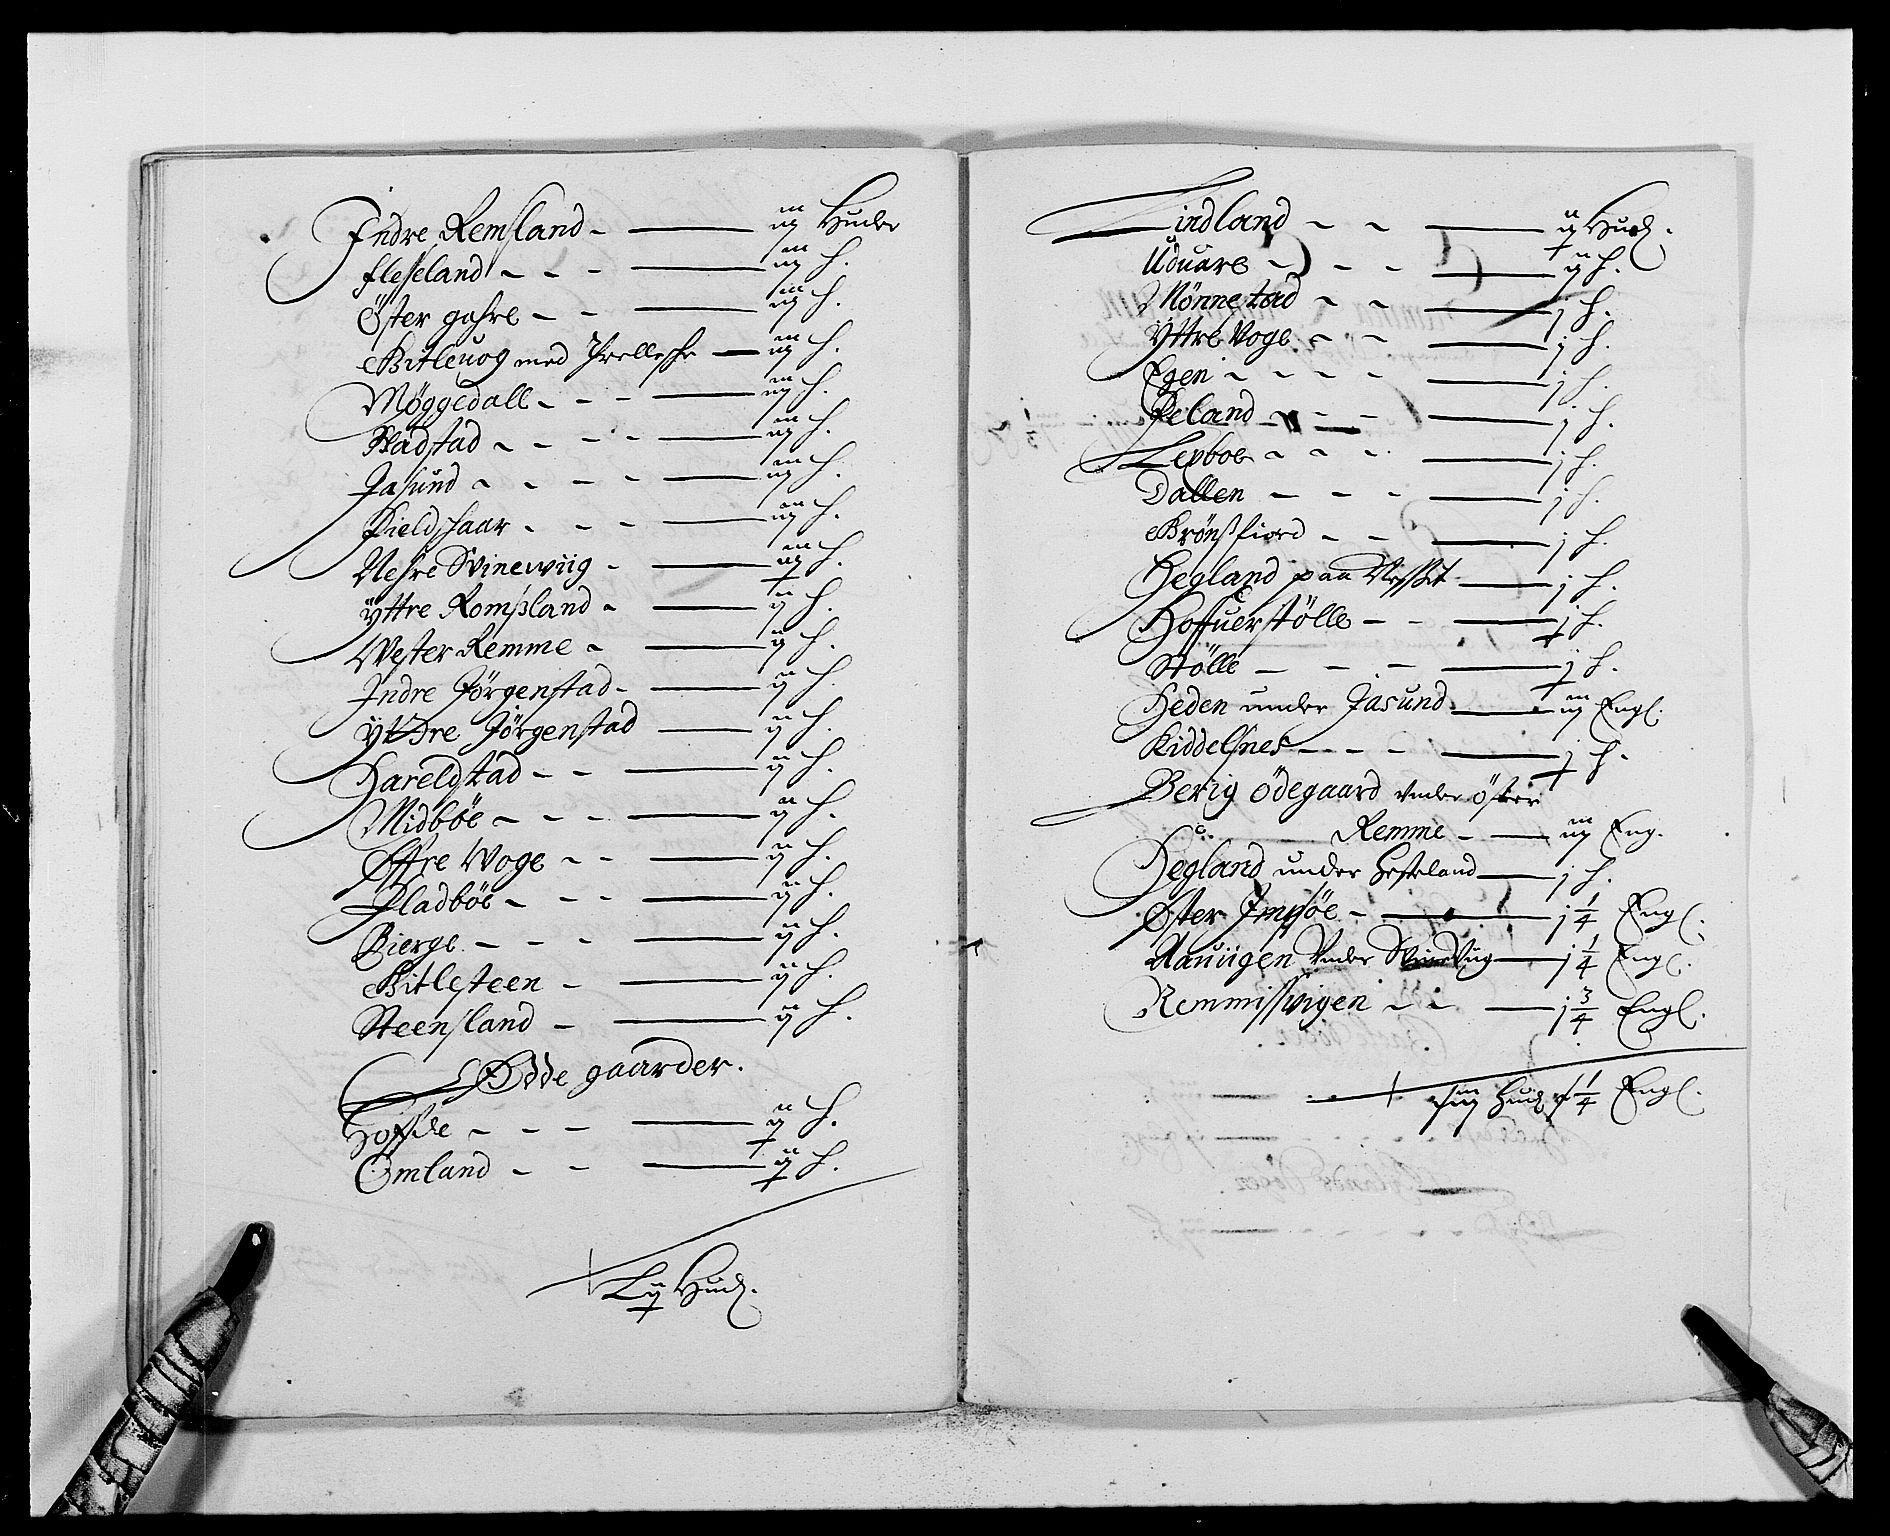 Indre Remsland - iij Huder
fleseland - - - iij h.
Öster gahre - - iij h.
Bitleuog med Prelleschr iij h.
Møggedall - - - iij h.
Wadstad - - - - iij h.
Jasund - - - - - iij h.
Kieldshaar - - - iij h.
Nehre Svinewiig - iij h.
Yttre Rompsland - ij h.
Wester Remme - ij h.
Indre Jörgenstad - ij h.
Yttre Jörgenstad ij h.
Hareldstad - - ij h.
Midböe - - - - ij h.
Öffre Woge - - ij h.
Fladböe - - - ij h.
Bierge - - - ij h.
Bitlesteen - ij h.
Steensland - ij h.
Ødde gaarder.
- - - ij h.
Omland - - ij h.
Lij Hud.
Lindland - - ij Hud.
Uduare - - - ij h.
Mönnestad - - j h.
Yttre Voge - - j h.
Egen - - - - j h.
Øeland - - - j h.
Lepboe - - - j h.
Dallen - - - j h.
Brönßfiord - - j h.
Hegland paa Neßet j h.
Hoffuerstölle - - j h.
Stölle - - - j h.
Heden under Jasund iij Engl.
Kiddelsnes - - - j h.
Berig ödegaard under öster
Remme - iij Eng.
Hegland under Hesteland j h.
Øster Impsöe - j 1/4 Engl.
Aauiigen Under Svineviig j 1/4 Engl.
Remmisvigen - - j 3/4 Engl.
Hud 1/4 Engl.